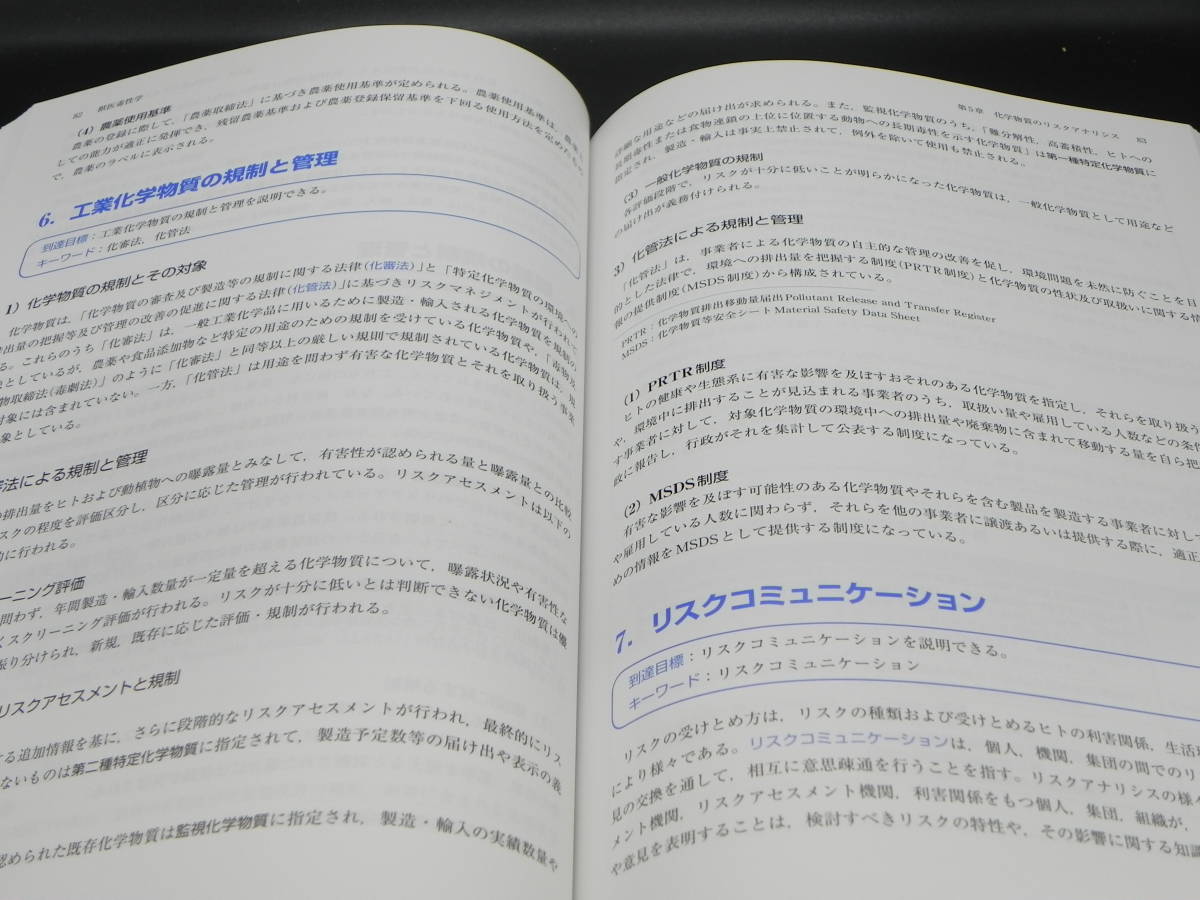 82 獣医毒性学
(4) 農薬使用基準
農薬の登録に際して,「農薬取締法」に基づき農薬使用基準が定められる。農薬使用基準は,農薬と
しての能力が適正に発揮でき,残留農薬基準および農薬登録保留基準を下回る使用方法を定めたもの
で,農薬のラベルに表示される。
6. 工業化学物質の規制と管理
到達目標:工業化学物質の規制と管理を説明できる。
キーワード:化審法,化管法
1) 化学物質の規制とその対象
化学物質は,「化学物質の審査及び製造等の規制に関する法律(化審法)」と「特定化学物質の環境への
出量の把握等及び管理の改善の促進に関する法律(化管法)」に基づきリスクマネジメントが行われて
る。これらのうち「化審法」は,一般工業化学品に用いるために製造・輸入される化学物質を規制の
としているが,農薬や食品添加物など特定の用途のための規制を受けている化学物質や,「毒物及
物取締法(毒劇法)」のように「化審法」と同等以上の厳しい規則で規制されている化学物質は,規
対象には含まれていない。一方,「化管法」は用途を問わず有害な化学物質とそれを取り扱う事業
象としている。
法による規制と管理
排出量をヒトおよび動植物への曝露量とみなして,有害性が認められる量と曝露量との比較
スクの程度を評価区分し,区分に応じた管理が行われている。リスクアセスメントは以下の
に行われる。
ーニング評価
問わず,年間製造・輸入数量が一定量を超える化学物質について,曝露状況や有害性な
くスクリーニング評価が行われる。リスクが十分に低いとは判断できない化学物質は優
振り分けられ,新規,既存に応じた評価・規制が行われる。
リスクアセスメントと規制
する追加情報を基に,さらに段階的なリスクアセスメントが行われ,最終的にリス
ないものは第二種特定化学物質に指定されて,製造予定数等の届け出や表示の義
認められた既存化学物質は監視化学物質に指定され,製造・輸入の実績数量や
第5章 化学物質のリスクアナリシス 83
詳細な用途などの届け出が求められる。また,監視化学物質のうち,「難分解性,高蓄積性,ヒトへの
長期毒性または食物連鎖の上位に位置する動物への長期毒性を示す化学物質」は第一種特定化学物質に
指定され,製造・輸入は事実上禁止されて,例外を除いて使用も禁止される。
(3) 一般化学物質の規制
各評価段階で,リスクが十分に低いことが明らかになった化学物質は,一般化学物質として用途など
の届け出が義務付けられる。
3) 化管法による規制と管理
「化管法」は,事業者による化学物質の自主的な管理の改善を促し,環境問題を未然に防ぐことを目
的とした法律で,環境への排出量を把握する制度(PRTR制度)と化学物質の性状及び取扱いに関する情
報の提供制度(MSDS制度)から構成されている。
PRTR:化学物質排出移動量届出Pollutant Release and Transfer Register
MSDS:化学物質等安全シートMaterial Safety Data Sheet
(1) PRTR制度
ヒトの健康や生態系に有害な影響を及ぼすおそれのある化学物質を指定し,それらを取り扱う
や,環境中に排出することが見込まれる事業者のうち,取扱い量や雇用している人数などの条件
す事業者に対して,対象化学物質の環境中への排出量や廃棄物に含まれて移動する量を自ら把
政に報告し,行政がそれを集計して公表する制度になっている。
(2) MSDS制度
有害な影響を及ぼす可能性のある化学物質やそれらを含む製品を製造する事業者に対して
や雇用している人数に関わらず,それらを他の事業者に譲渡あるいは提供する際に,適正
めの情報をMSDSとして提供する制度になっている。
7. リスクコミュニケーション
到達目標:リスクコミュニケーションを説明できる。
キーワード:リスクコミュニケーション
リスクの受けとめ方は,リスクの種類および受けとめるヒトの利害関係,生活
により様々である。リスクコミュニケーションは,個人,機関,集団の間でのリ
見の交換を通して,相互に意思疎通を行うことを指す。リスクアナリシスの様々
メント機関,リスクアセスメント機関,利害関係をもつ個人,集団,組織が,
や意見を表明することは,検討すべきリスクの特性や,その影響に関する知識